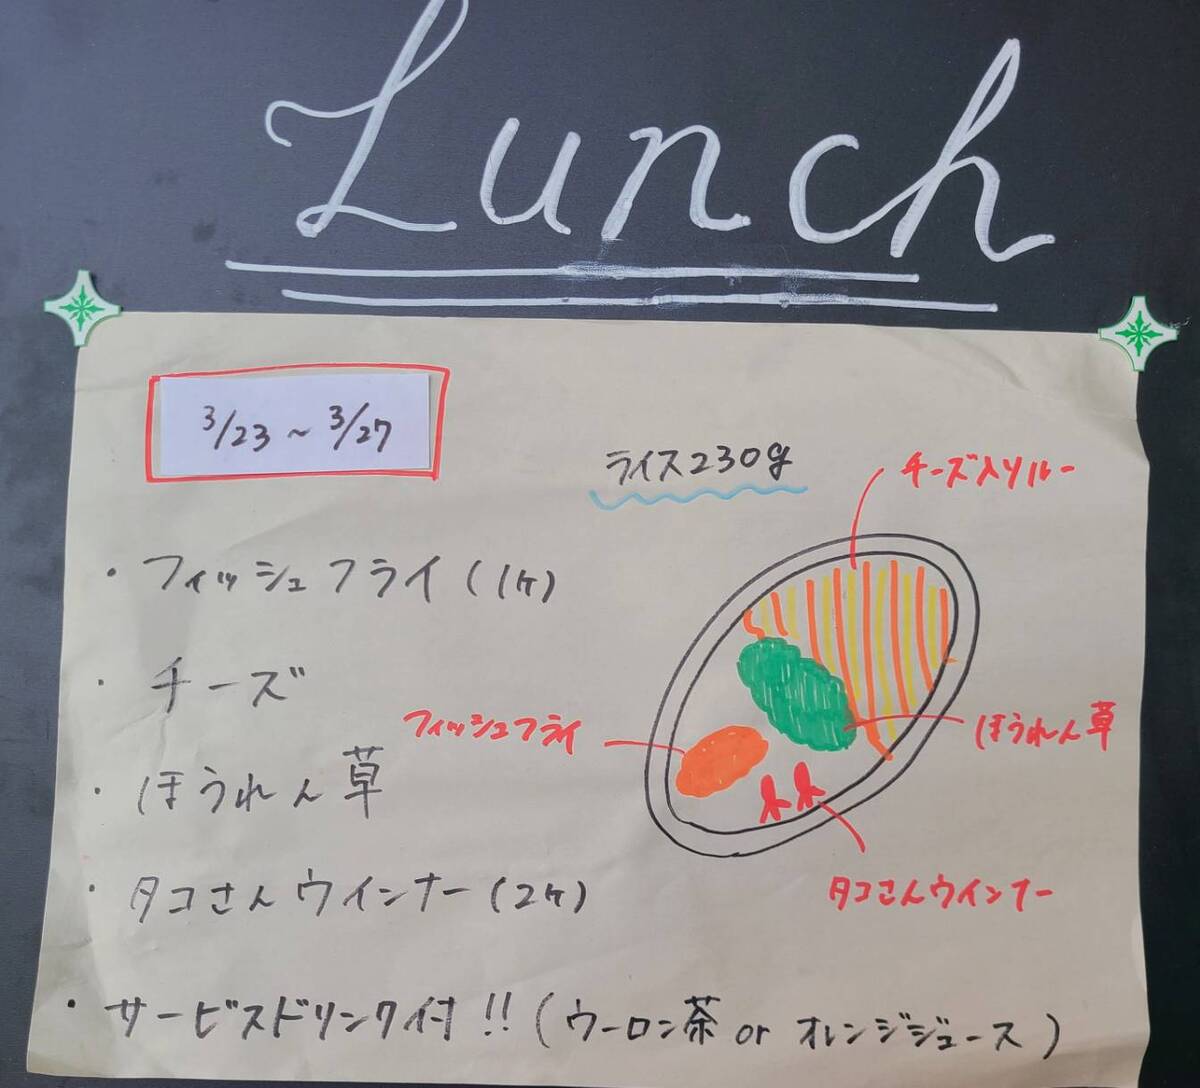 Lunch
3/23～3/27
ライス230g
チーズ入りルー
・フィッシュフライ(1ヶ)
・チーズ
フィッシュフライ
ほうれん草
・ほうれん草
・タコさんウインナー(2ヶ)
タコさんウインナー
・サービスドリンク付!!(ウーロン茶 or オレンジジュース)